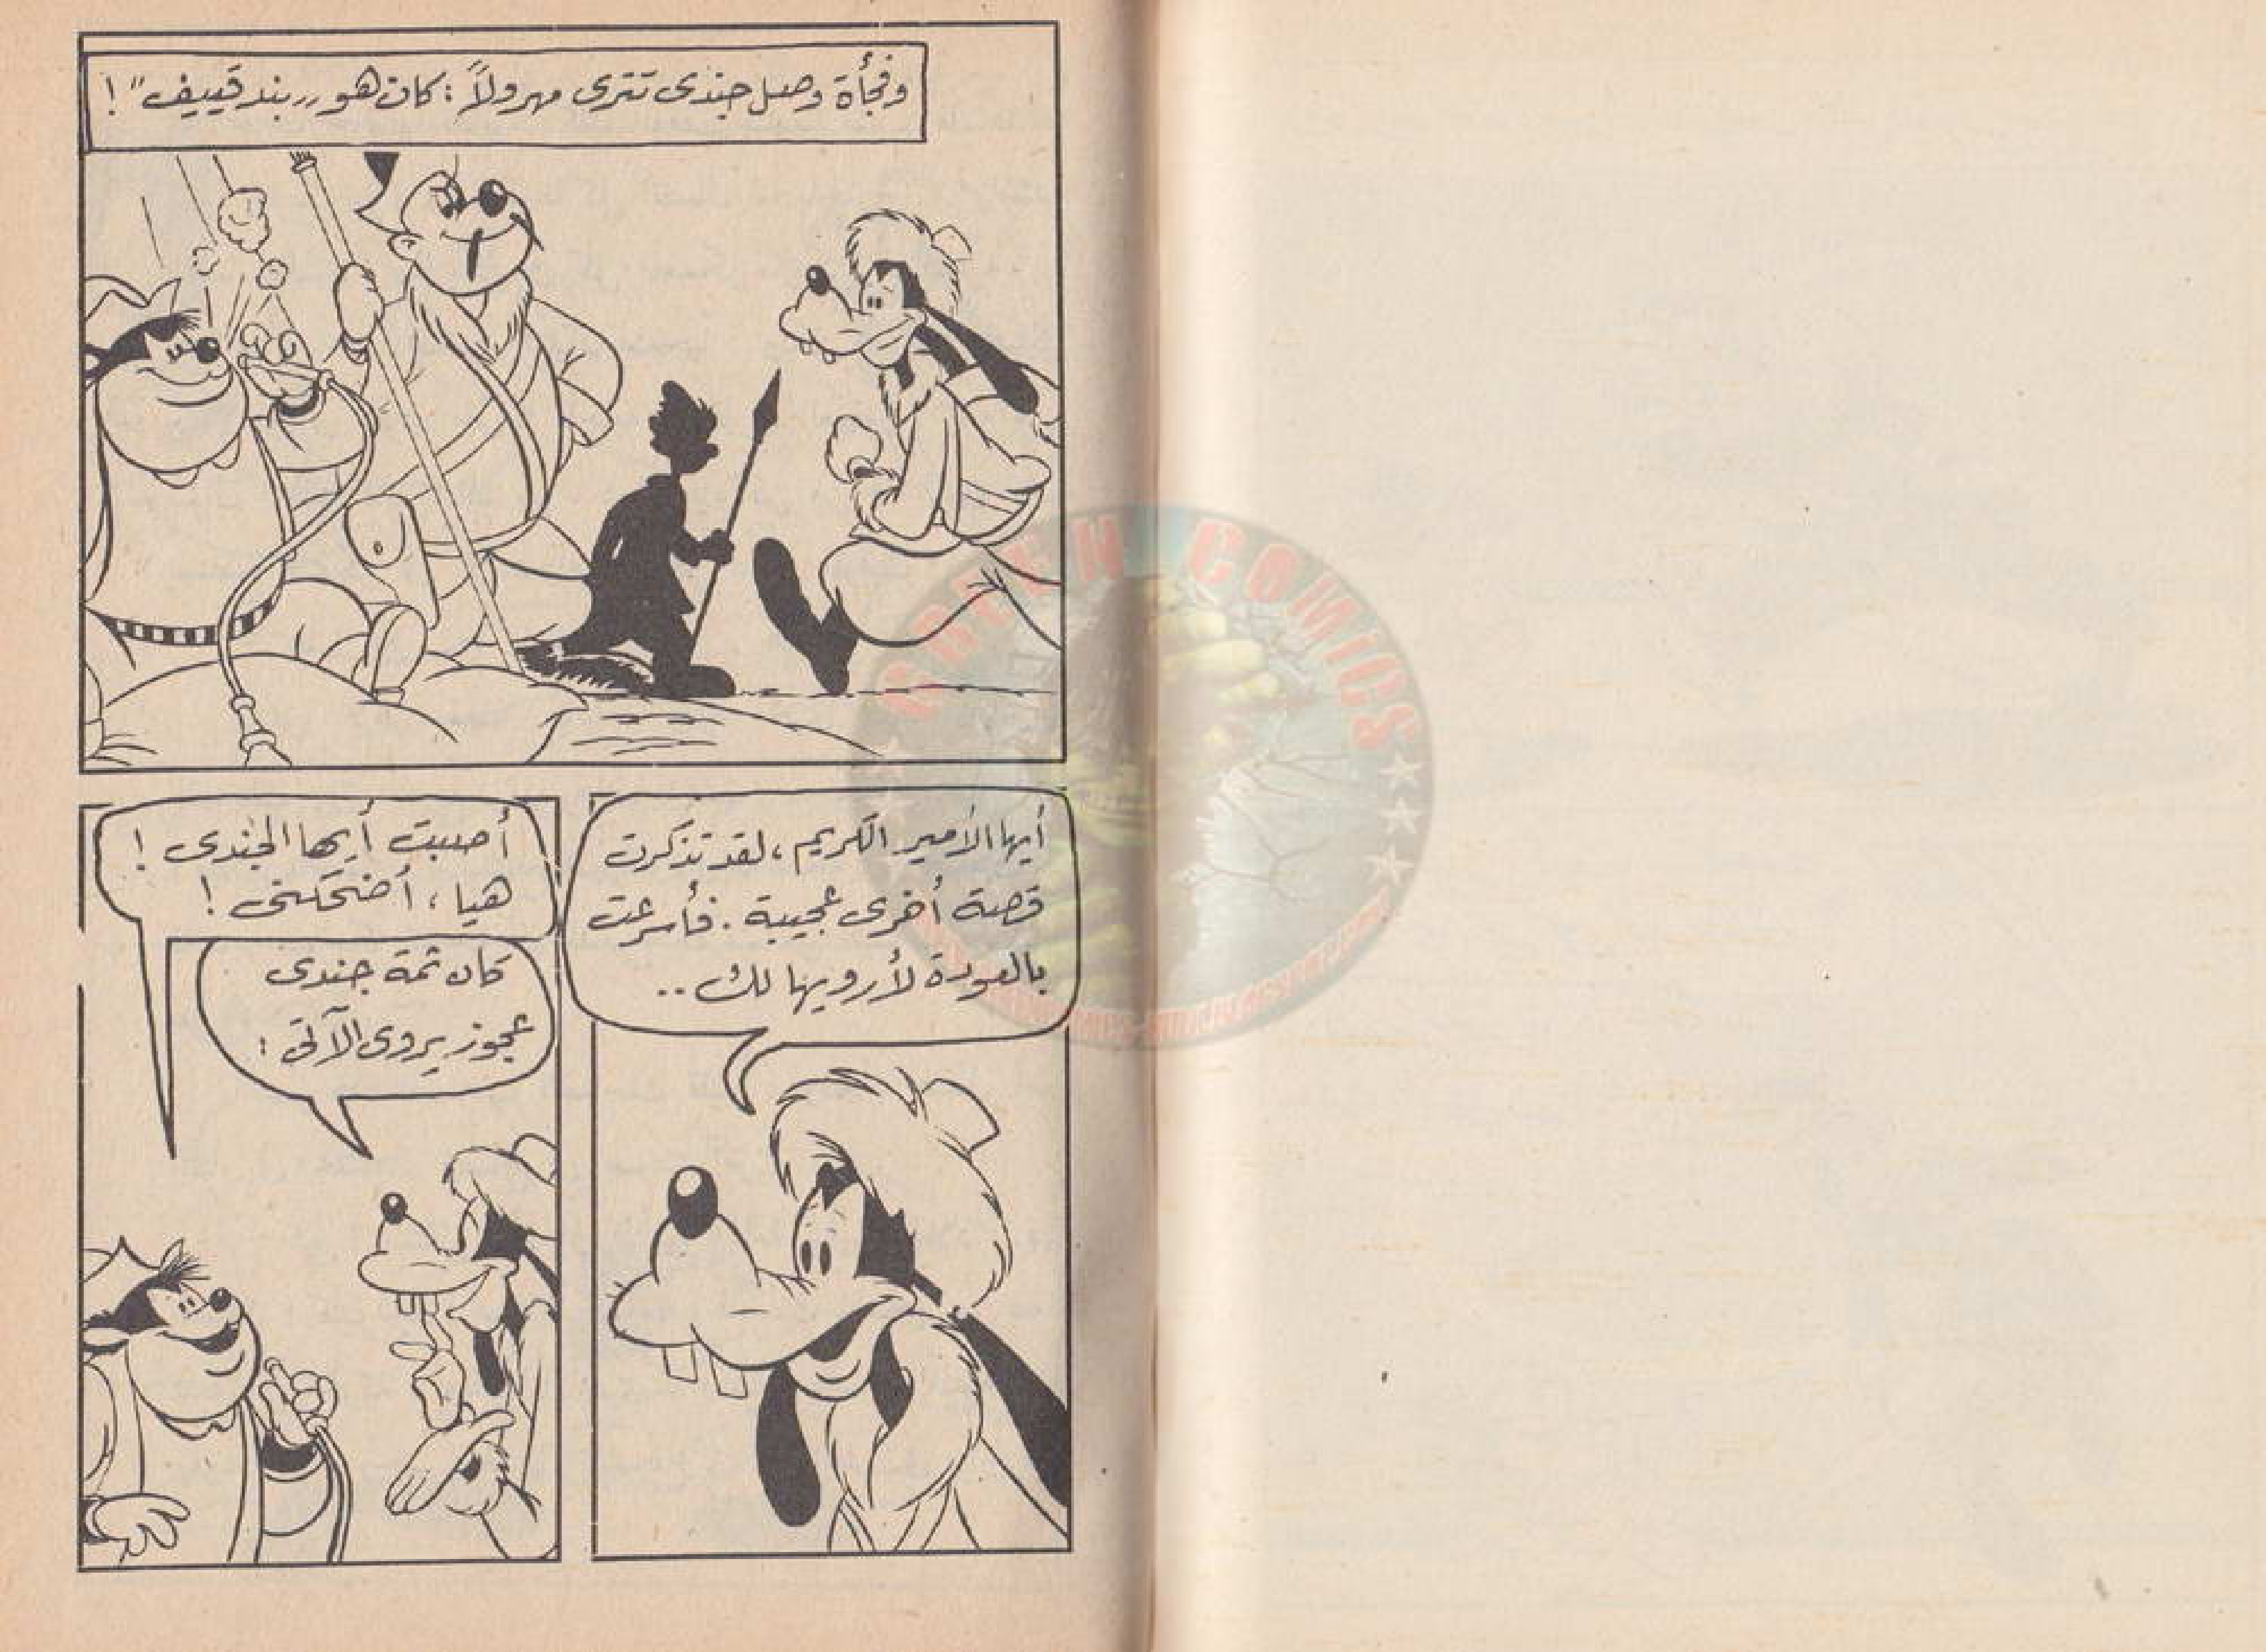 وفجأة وصل جندى تترى مهرولاً : كان هو ,, بندقييف " !
أيها الأمير الكريم ، لقد تذكرت
قصة أخرى عجيبة . فأسرعت
بالعودة لأرويها لك ..
أصبت أيها الجندى !
هيا ، أضحكنى !
كان ثمة جندى
عجوز يروى الآتى :
COMICS